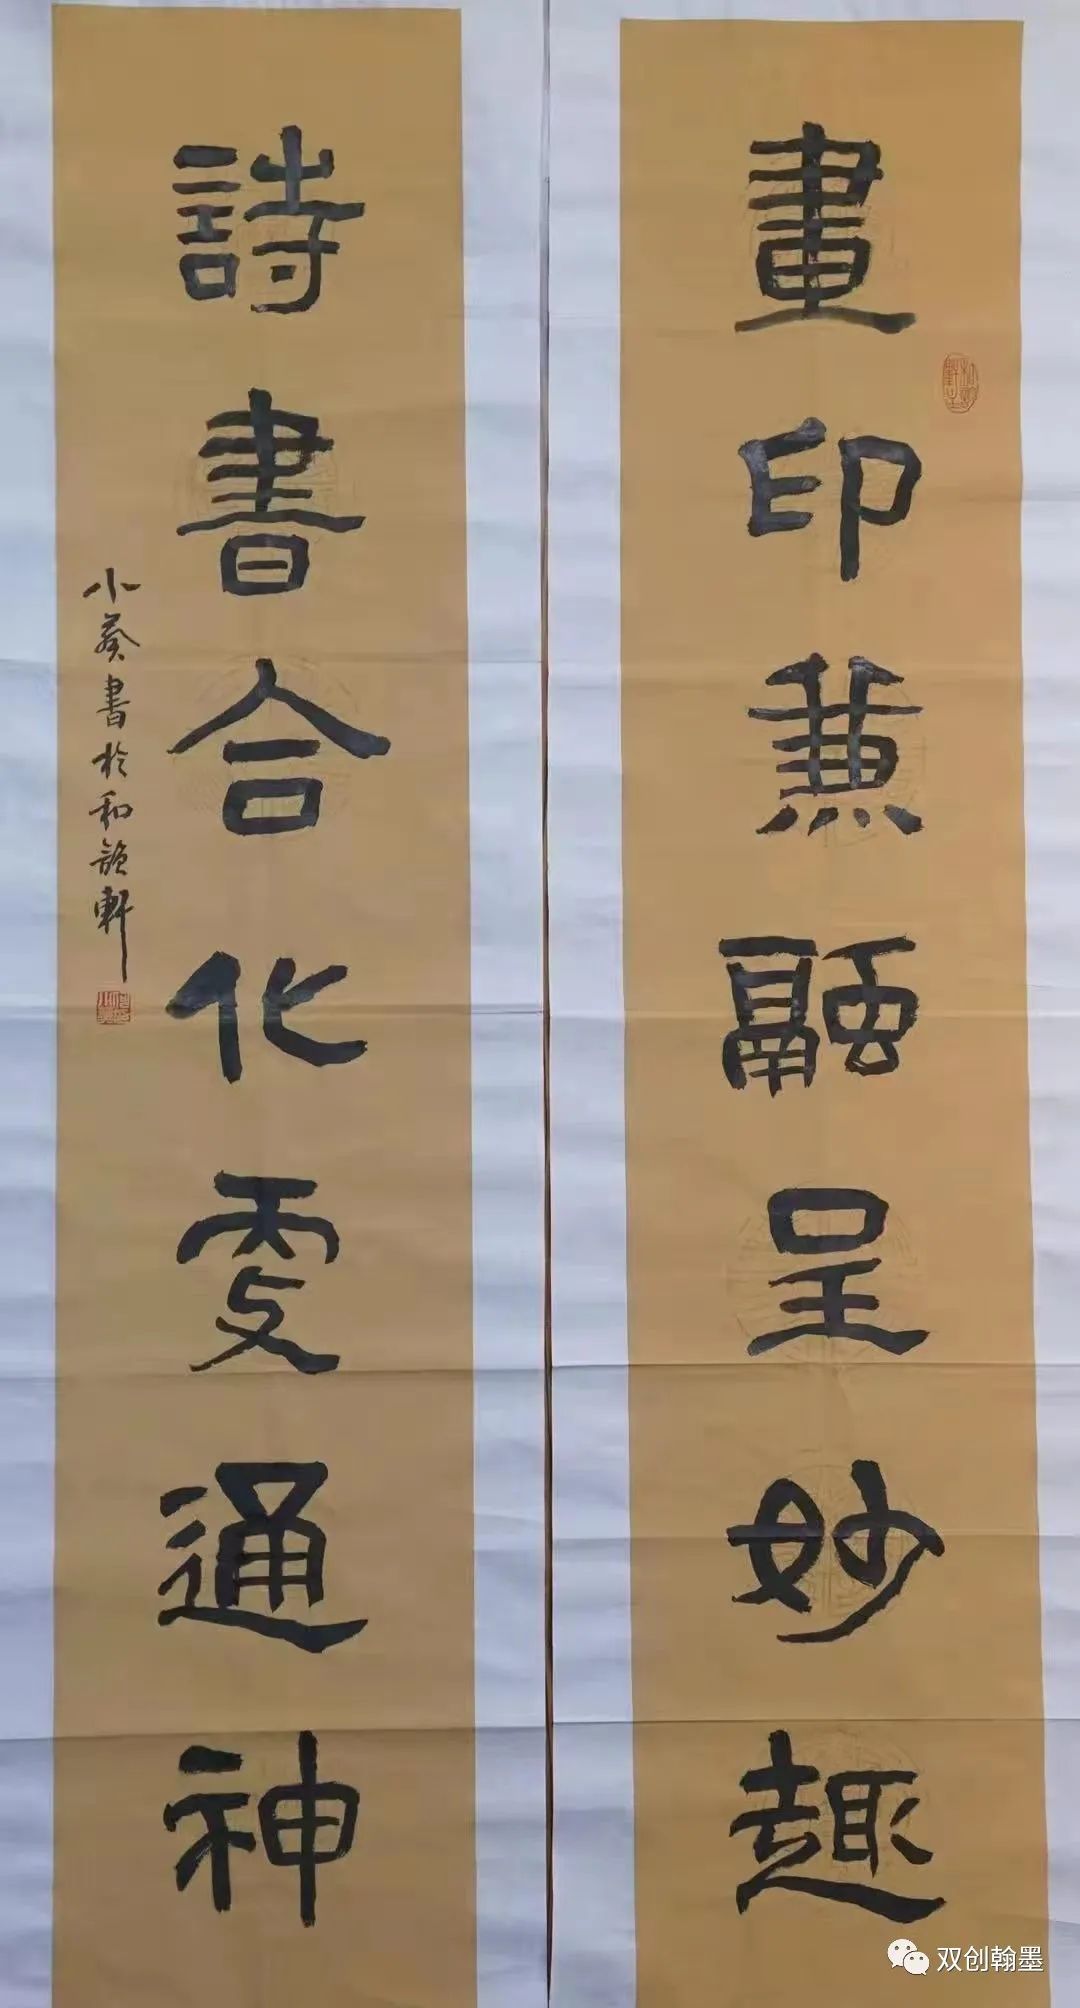 畫印兼融呈妙趣
詩書合化更通神
小葵書於和韻軒
双创翰墨